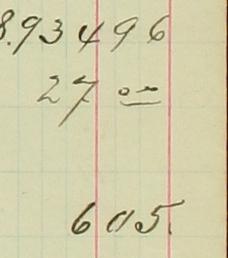 8.93496
27 00
605.